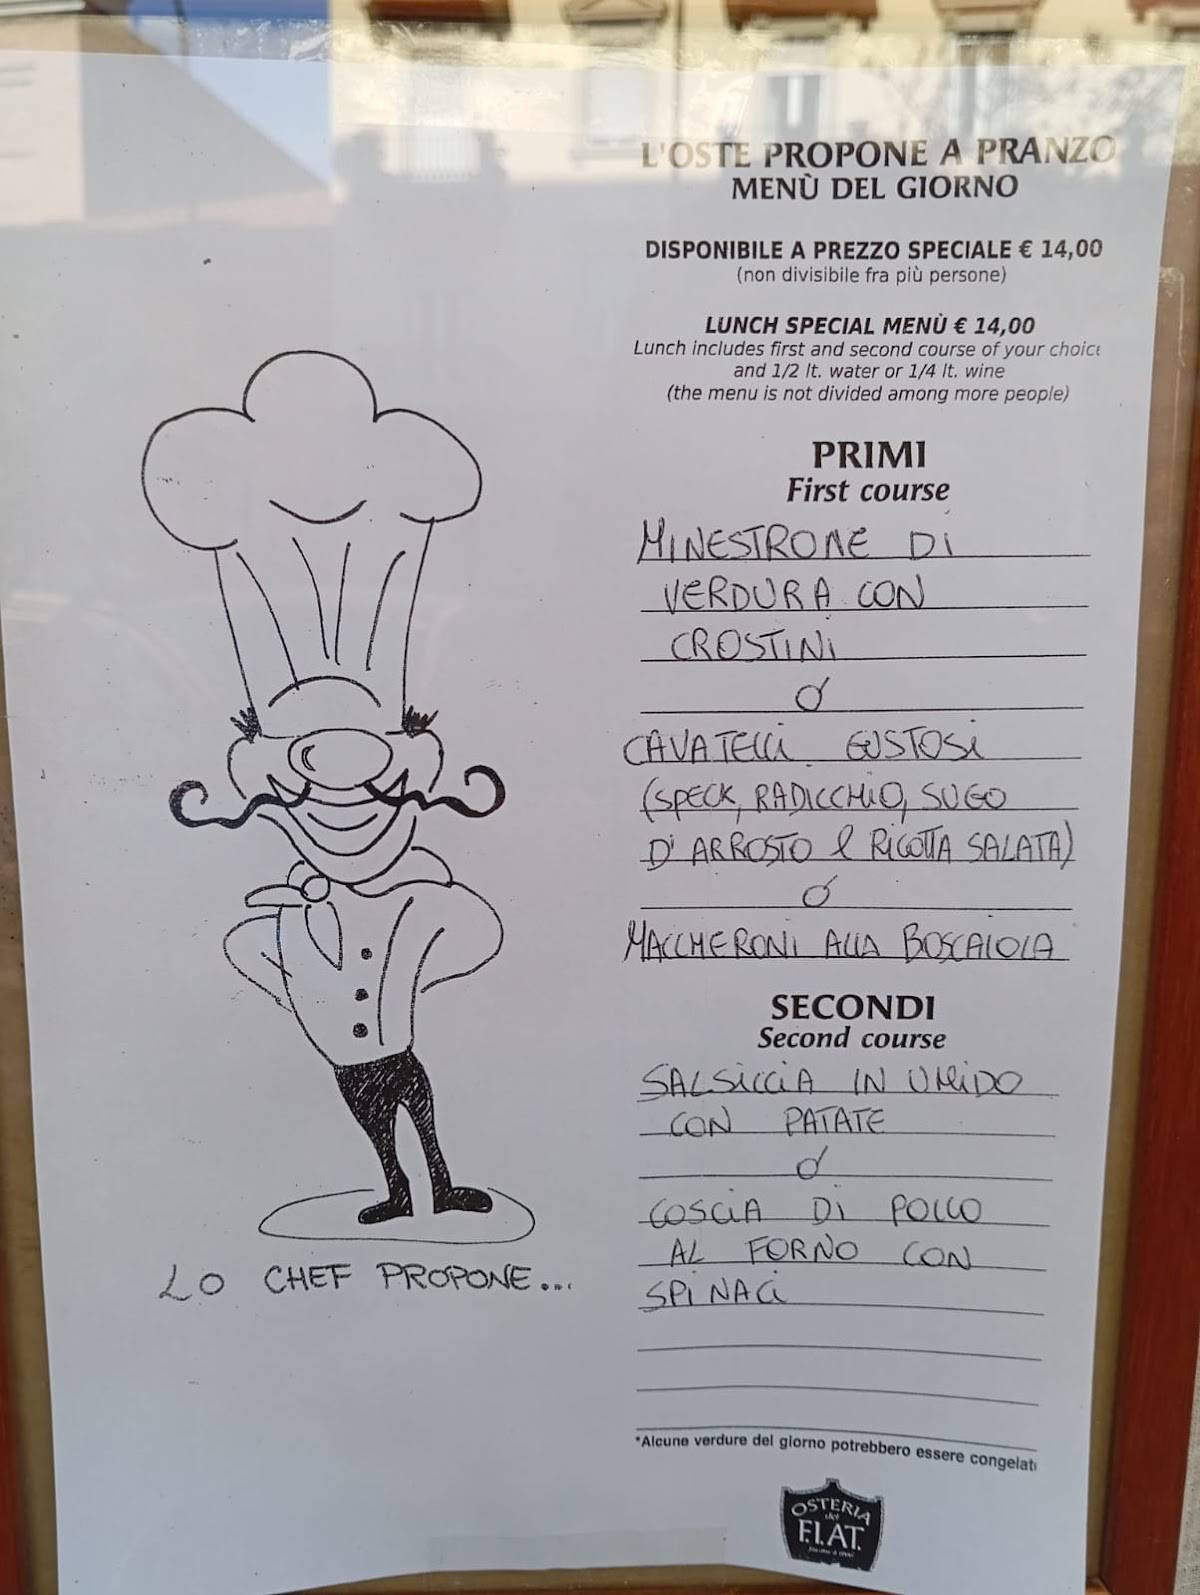 L'OSTE PROPONE A PRANZO
MENÙ DEL GIORNO
DISPONIBILE A PREZZO SPECIALE € 14,00
(non divisibile fra più persone)
LUNCH SPECIAL MENÙ € 14,00
Lunch includes first and second course of your choice
and 1/2 lt. water or 1/4 lt. wine
(the menu is not divided among more people)
PRIMI
First course
MINESTRONE DI
VERDURA CON
CROSTINI
O'
CAVATELLI GUSTOSI
(SPECK, RADICCHIO, SUGO
D'ARROSTO e RICOTTA SALATA)
O'
MACCHERONI ALLA BOSCAIOLA
SECONDI
Second course
SALSICCIA IN UMIDO
CON PATATE
O'
COSCIA DI POLLO
AL FORNO CON
SPINACI
LO CHEF PROPONE...
*Alcune verdure del giorno potrebbero essere congelati
OSTERIA
del
F.I.A.T.